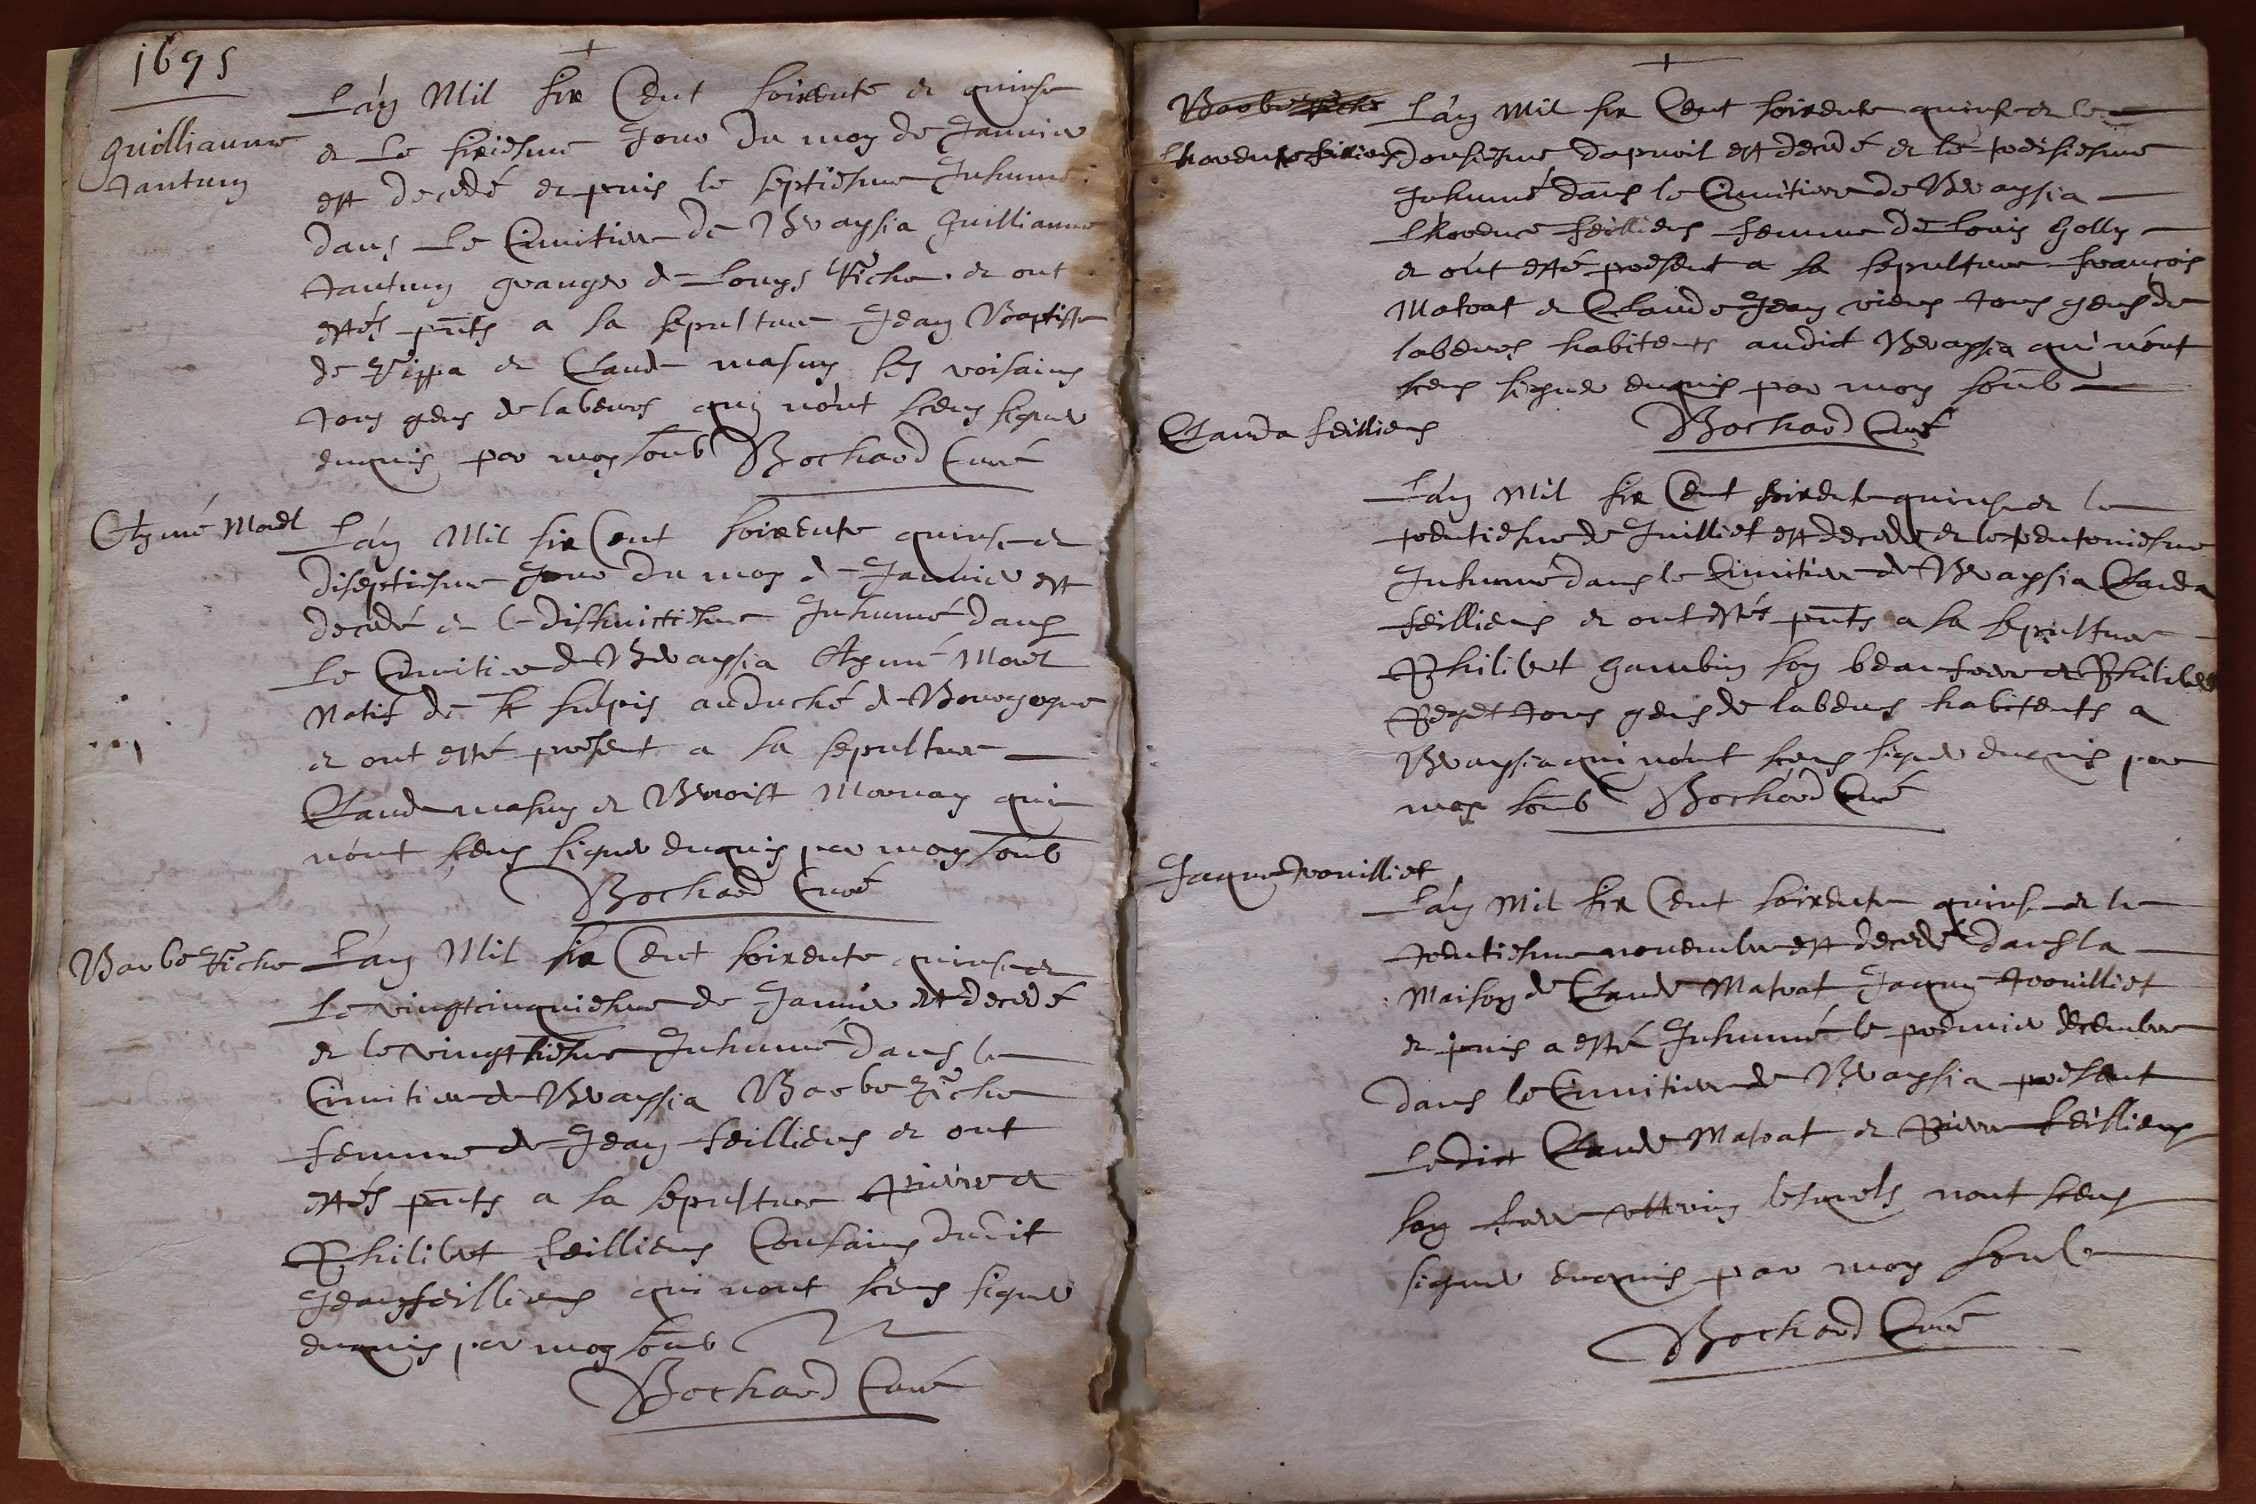 1695
Guillianme
tantuny
L'an Mil six Cent soixente et quinse
et le sixiesme Jour du moy de Janvier
est decedé et puis le septiesme Inhumé
dans le Cimitiere de Breyssia Guillianme
tantuny granger de Louys Fiche. et ont
estés pnts a la sepulture Jean Baptiste
de et Claude masuy ses voisains
tous gens de labeurs qui nónt sceus signer
enquis par moy soub Bochard Curé
Aymé Morel
L'an Mil six Cent soixente quinse et
diseptiesme Jour du moy de Janvier est
decedé et le dishuictiesme Inhumé dans
le Cimitiere de Breyssia Aymé Morel
Natif de St sulpis au duché de Bourgogne
et ont esté present a la sepulture
Claude masuy et Benoist Mornay qui
nónt sceus signer enquis par moy soub
Bochard Curé
Barbe Fiche
L'an Mil six Cent soixente quinse et
le vingtcinquiesme de Janvier est decedé
et le vingtsiesme Inhumé dans le
Cimitiere de Breyssia Barbe Fiche
femme de Jean feilliens et ont
estés pnts a la sepulture Pierre et
Philibet feilliens Cousains dudit
Jean feilliens qui nont sceus signer
enquis par moy soub
Bochard Curé
Barbe Fiche
Lhorence feilliens
L'an Mil six Cent soixente quinse et le
dousiesme dapvril est decedé et le tresiesme
Inhumé dans le Cimitiere de Breyssia
Lhorence feilliens femme de Louis Golly
et ont esté present a la sepulture francois
Matrat et Claude Jean viens tous gens de
labeurs habitents audict Breyssia qui nónt
sceus signer enquis par moy soub
Bochard Curé
Clauda feilliens
L'an Mil six Cent soixente quinse et le
trentiesme de Juilliet est decedé et le trenteuniesme
Inhumé dans le Cimitiere de Breyssia Clauda
feilliens et ont estés pnts a la sepulture
Philibet Gambin son beaufrere et Philibet
Peget tous gens de labeurs habitents a
Breyssia qui nónt sceus signer enquis par
moy soub Bochard Curé
Jaque trouilliet
L'an Mil six Cent soixente quinse et le
trentiesme novembre est decedé dans la
Maison de Claude Matrat Jaque trouilliet
et puis a esté Inhumé le premier decembre
dans le Cimitiere de Breyssia present
Ledict Claude Matrat et Pierre feilliens
son frere utterin lesquels nont sceus
signer enquis par moy soub
Bochard Curé